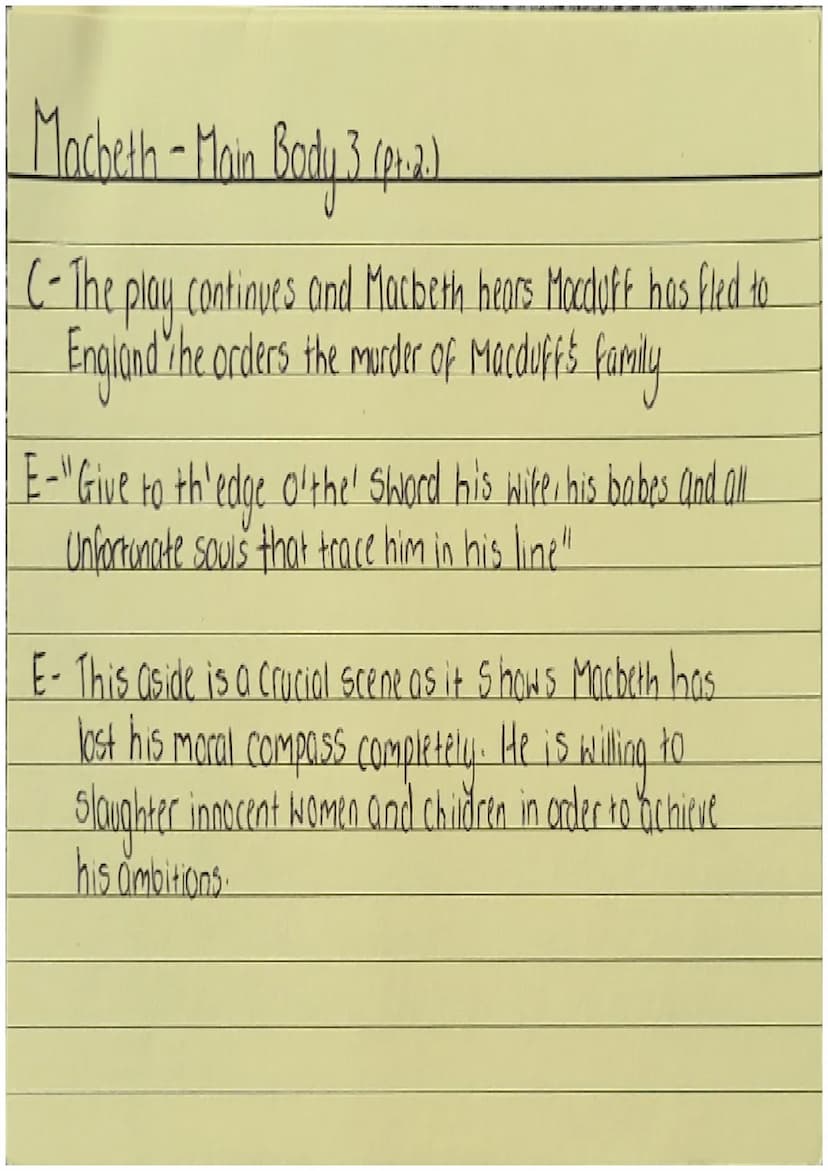 Macbeth - Main Body 3 (pt.2.)
C- The play continues and Macbeth hears Macduff has fled to
England, he orders the murder of Macduff's family
E- "Give to th'edge o'the' sword his wife, his babes and all
unfortunate souls that trace him in his line"
E- This aside is a crucial scene as it shows Macbeth has
lost his moral compass completely. He is willing to
slaughter innocent women and children in order to achieve
his ambitions.